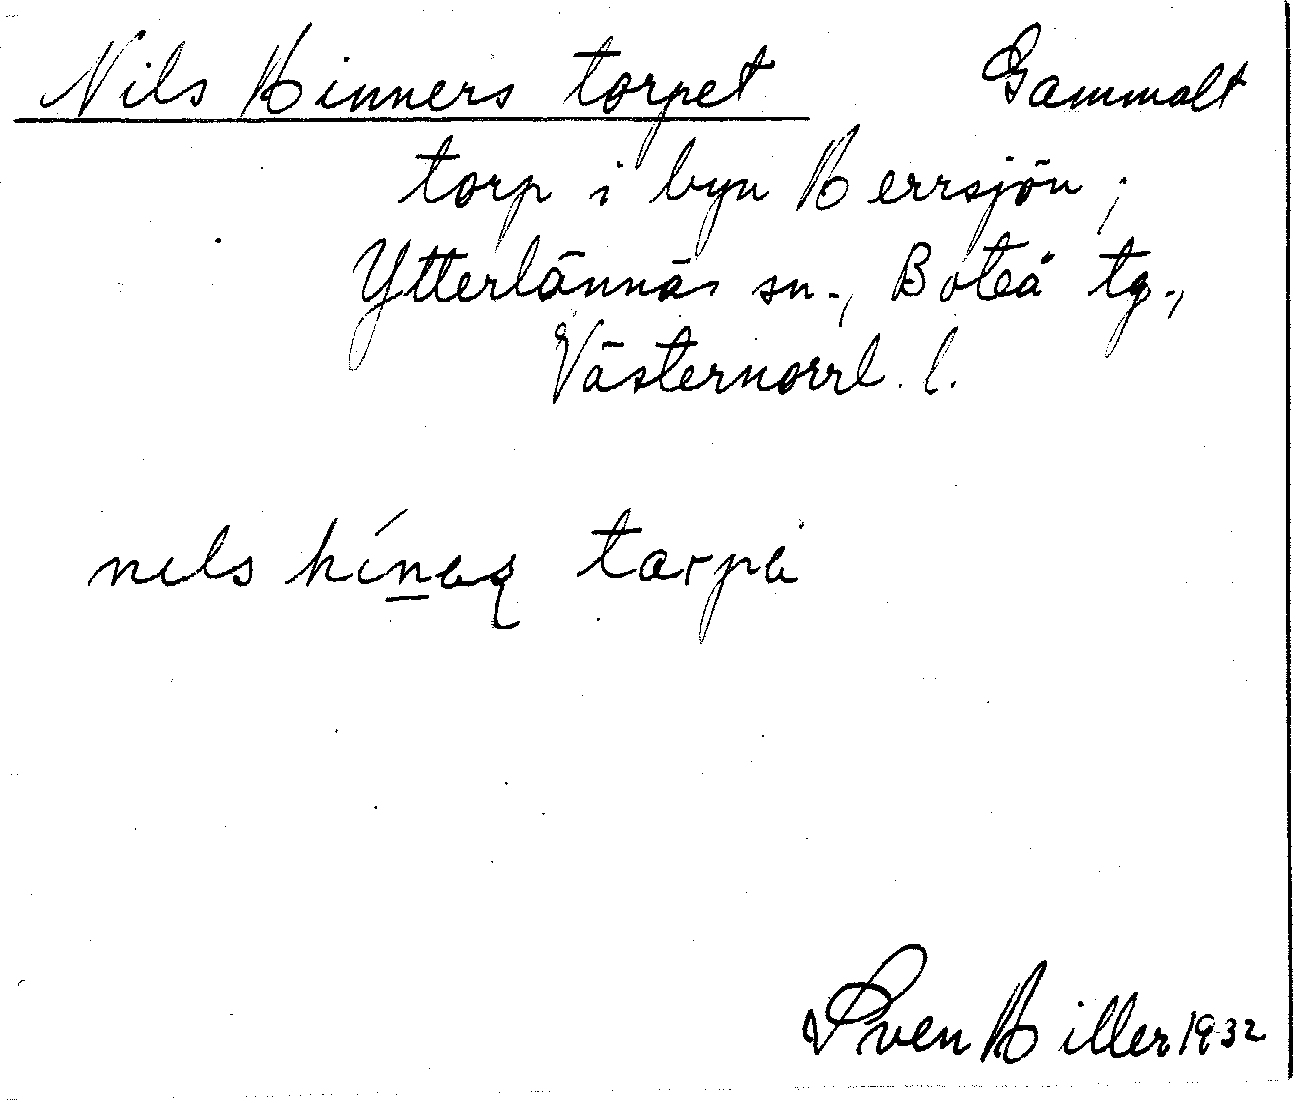 Nils Hinners torpet Gammalt
torp i byn Herrsjön,
Ytterlännäs sn., Boteå tg.,
Västernorrl. l.
nils hínas tarpa
Sven Hiller 1932